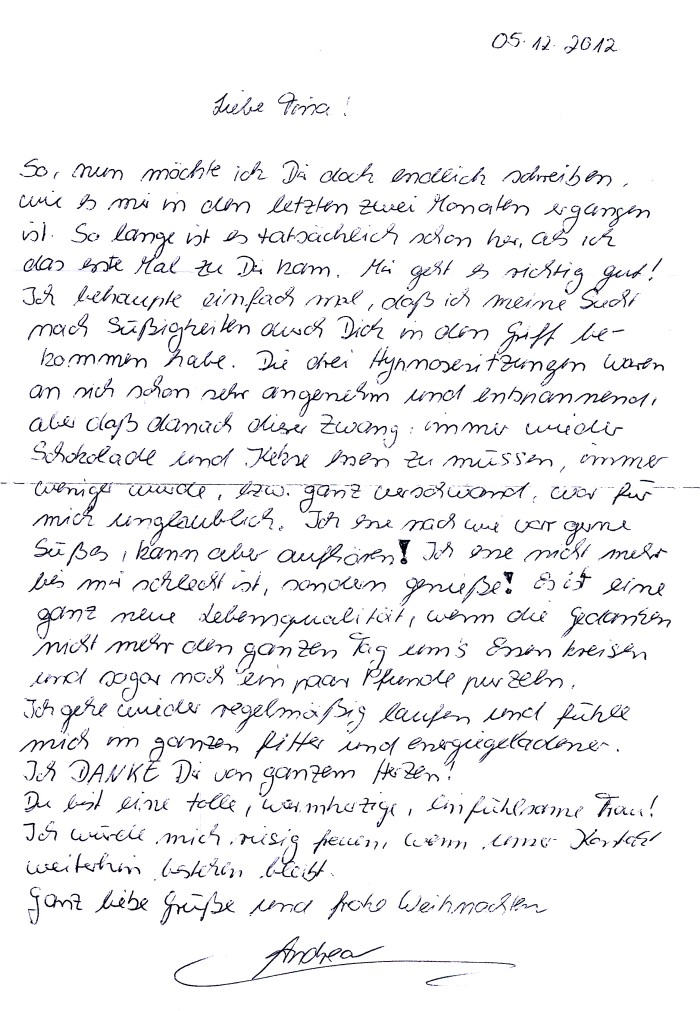 05.12.2012
Liebe Tina!
So, nun möchte ich Dir doch endlich schreiben,
wie es mir in den letzten zwei Monaten ergangen
ist. So lange ist es tatsächlich schon her, als ich
das erste Mal zu Dir kam. Mir geht es richtig gut!
Ich behaupte einfach mal, daß ich meine Sucht
nach Süßigkeiten durch Dich in den Griff be-
kommen habe. Die drei Hypnosesitzungen waren
an sich schon sehr angenehm und entspannend,
aber daß danach dieser Zwang, immer wieder
Schokolade und Kekse essen zu müssen, immer
weniger wurde, bzw. ganz verschwand, war für
mich unglaublich. Ich esse nach wie vor gerne
Süßes, kann aber aufhören! Ich esse nicht mehr
bis mir schlecht ist, sondern genieße! Es ist eine
ganz neue Lebensqualität, wenn die Gedanken
nicht mehr den ganzen Tag um's Essen kreisen
und sogar noch ein paar Pfunde purzeln.
Ich gehe wieder regelmäßig laufen und fühle
mich im ganzen fitter und energiegeladener.
Ich DANKE Dir von ganzem Herzen!
Du bist eine tolle, warmherzige, einfühlsame Frau!
Ich würde mich riesig freuen, wenn unser Kontakt
weiterhin bestehen bleibt.
Ganz liebe Grüße und frohe Weihnachten
Andrea